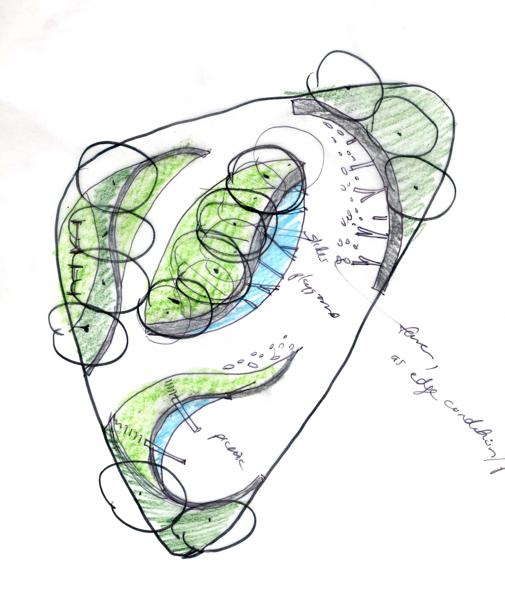 slides
playground
fence,
as edge condition
picnic